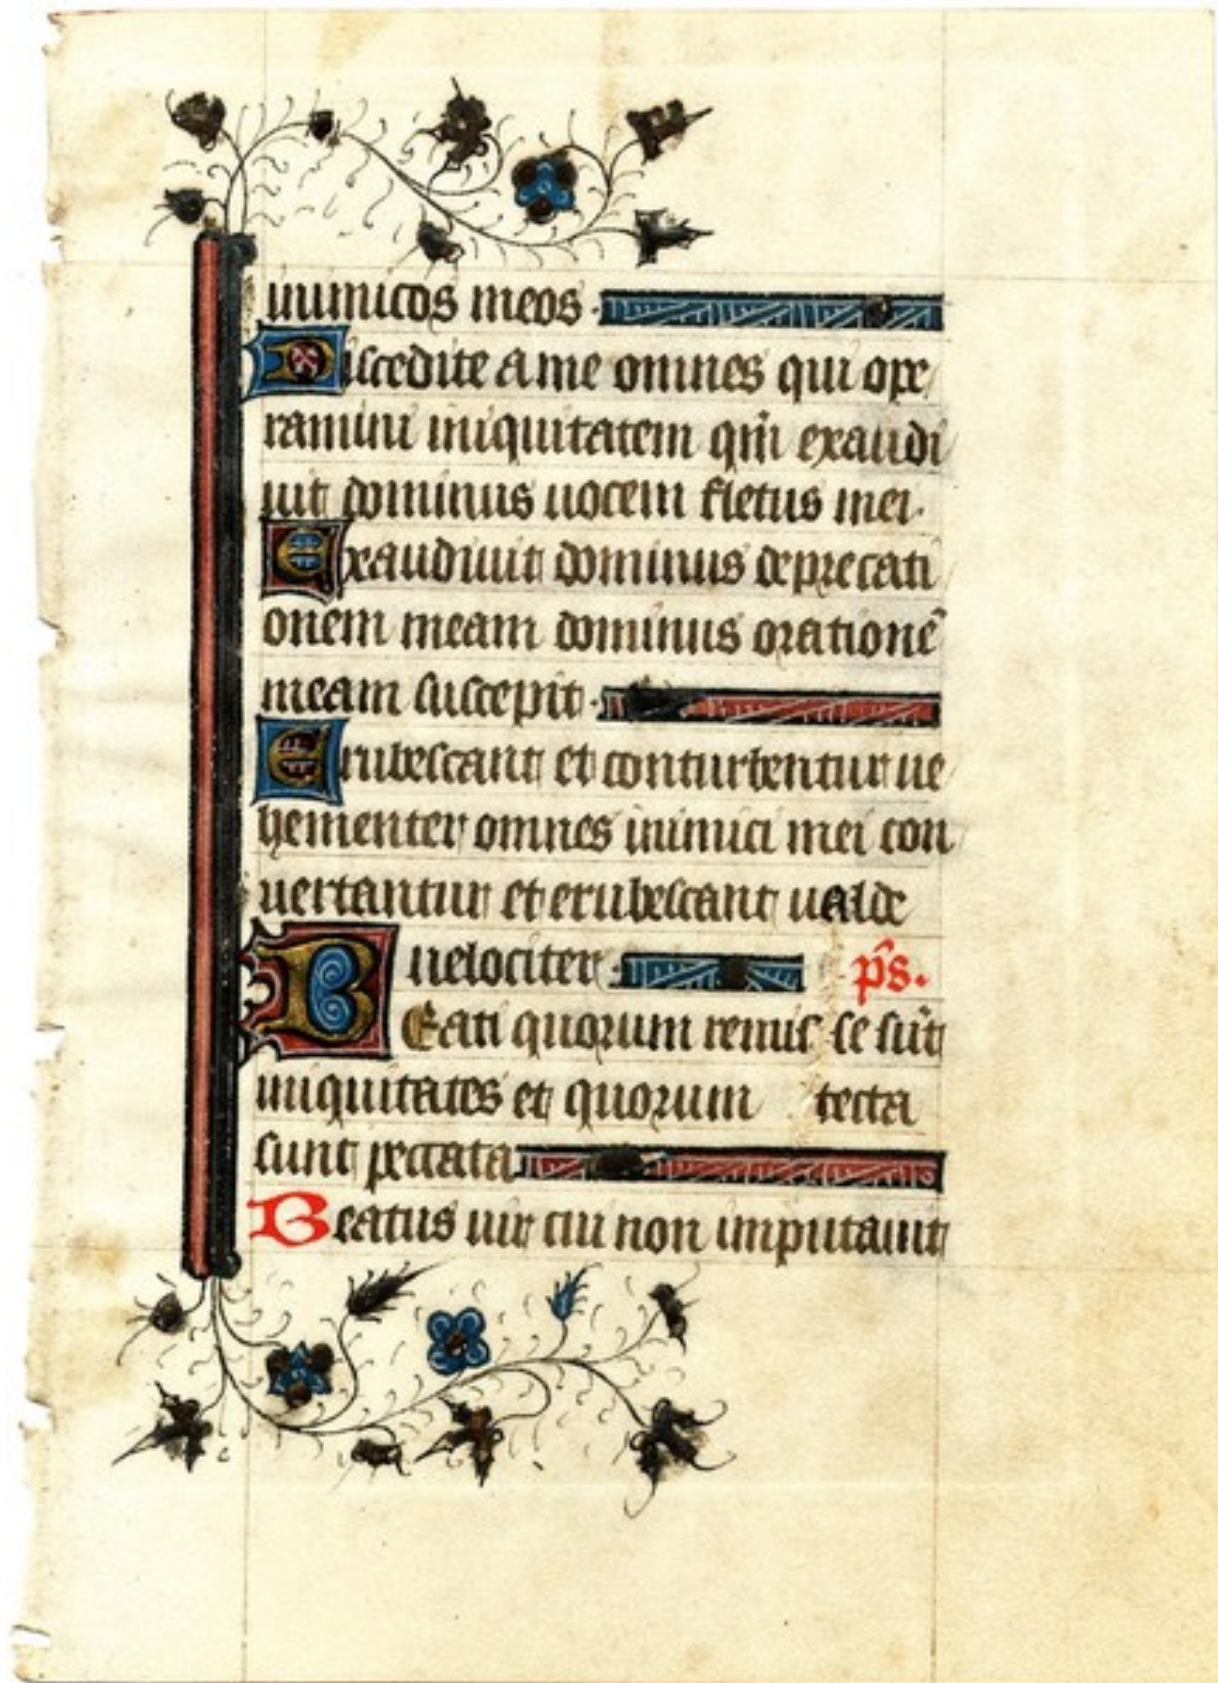 inimicos meos.
Discedite a me omnes qui ope
ramini iniquitatem qm̄ exaudi
uit dominus uocem fletus mei.
Exaudiuit dominus deprecati
onem meam dominus orationē
meam suscepit.
Erubescant et conturbentur ue
hementer omnes inimici mei con
uertantur et erubescant ualde
uelociter. p̄s.
Beati quorum remisse sūt
iniquitates et quorum tecta
sunt peccata
Beatus uir cui non imputauit